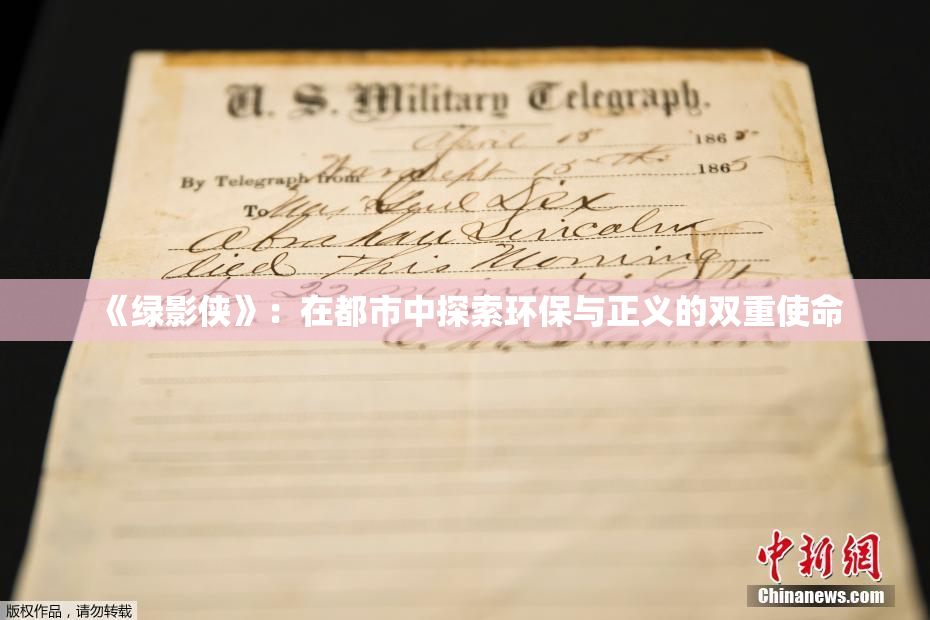 U. S. Military Telegraph.
April 15 1865
By Telegraph from War Dept 15th 1865
To Maj Genl Dix
Abraham Lincoln
died This Morning
at 22 minutes after
《绿影侠》：在都市中探索环保与正义的双重使命
E. M. Stanton
中新网
Chinanews.com
版权作品，请勿转载